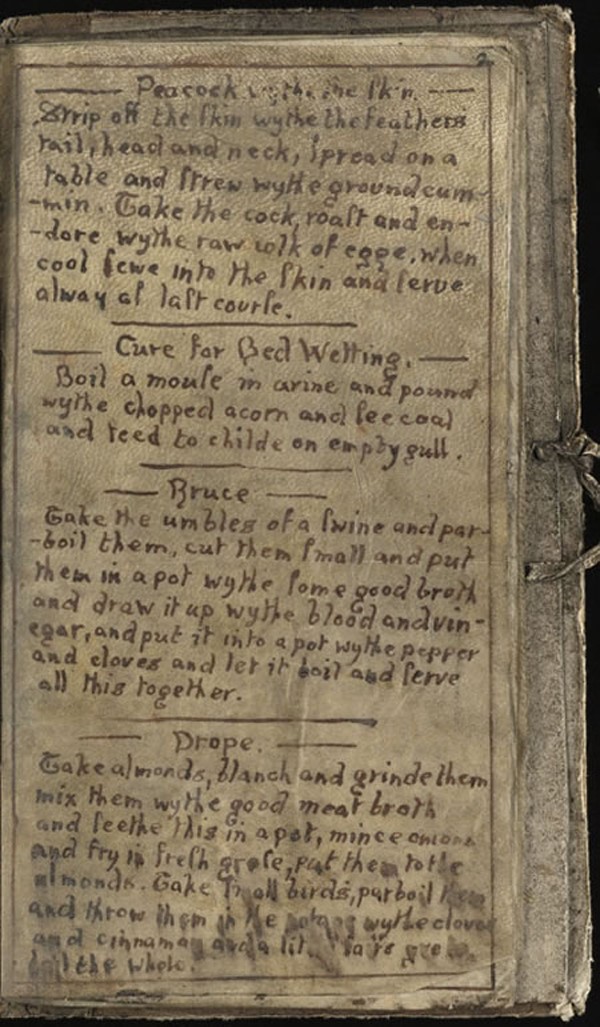 2
Peacock wythe the ſkin.
Strip off the ſkin wythe the feathers
tail, head and neck, ſpread on a
table and ſtrew wythe ground cum-
-min. Take the cock, roaſt and en-
-dore wythe raw yolk of egge, when
cool ſewe into the ſkin and ſerve
alway aſ laſt courſe.
Cure for Bed Wetting.
Boil a mouſe in urine and pound
wythe chopped acorn and ſeecoal
and feed to childe on empty gull.
Bruce
Take the umbles of a ſwine and par-
-boil them, cut them ſmall and put
them in a pot wythe ſome good broth
and draw it up wythe blood and vin-
egar, and put it into a pot wythe pepper
and cloves and let it boil and ſerve
all this together.
Drope.
Take almonds, blanch and grinde them
mix them wythe good meat broth
and ſeethe this in a pot, mince onions
and fry in freſh greſe, put them to the
almonds. Take ſmall birds, parboil them
and throw them in the potage wythe cloves
and cinnamon and a lit.
boil the whole.